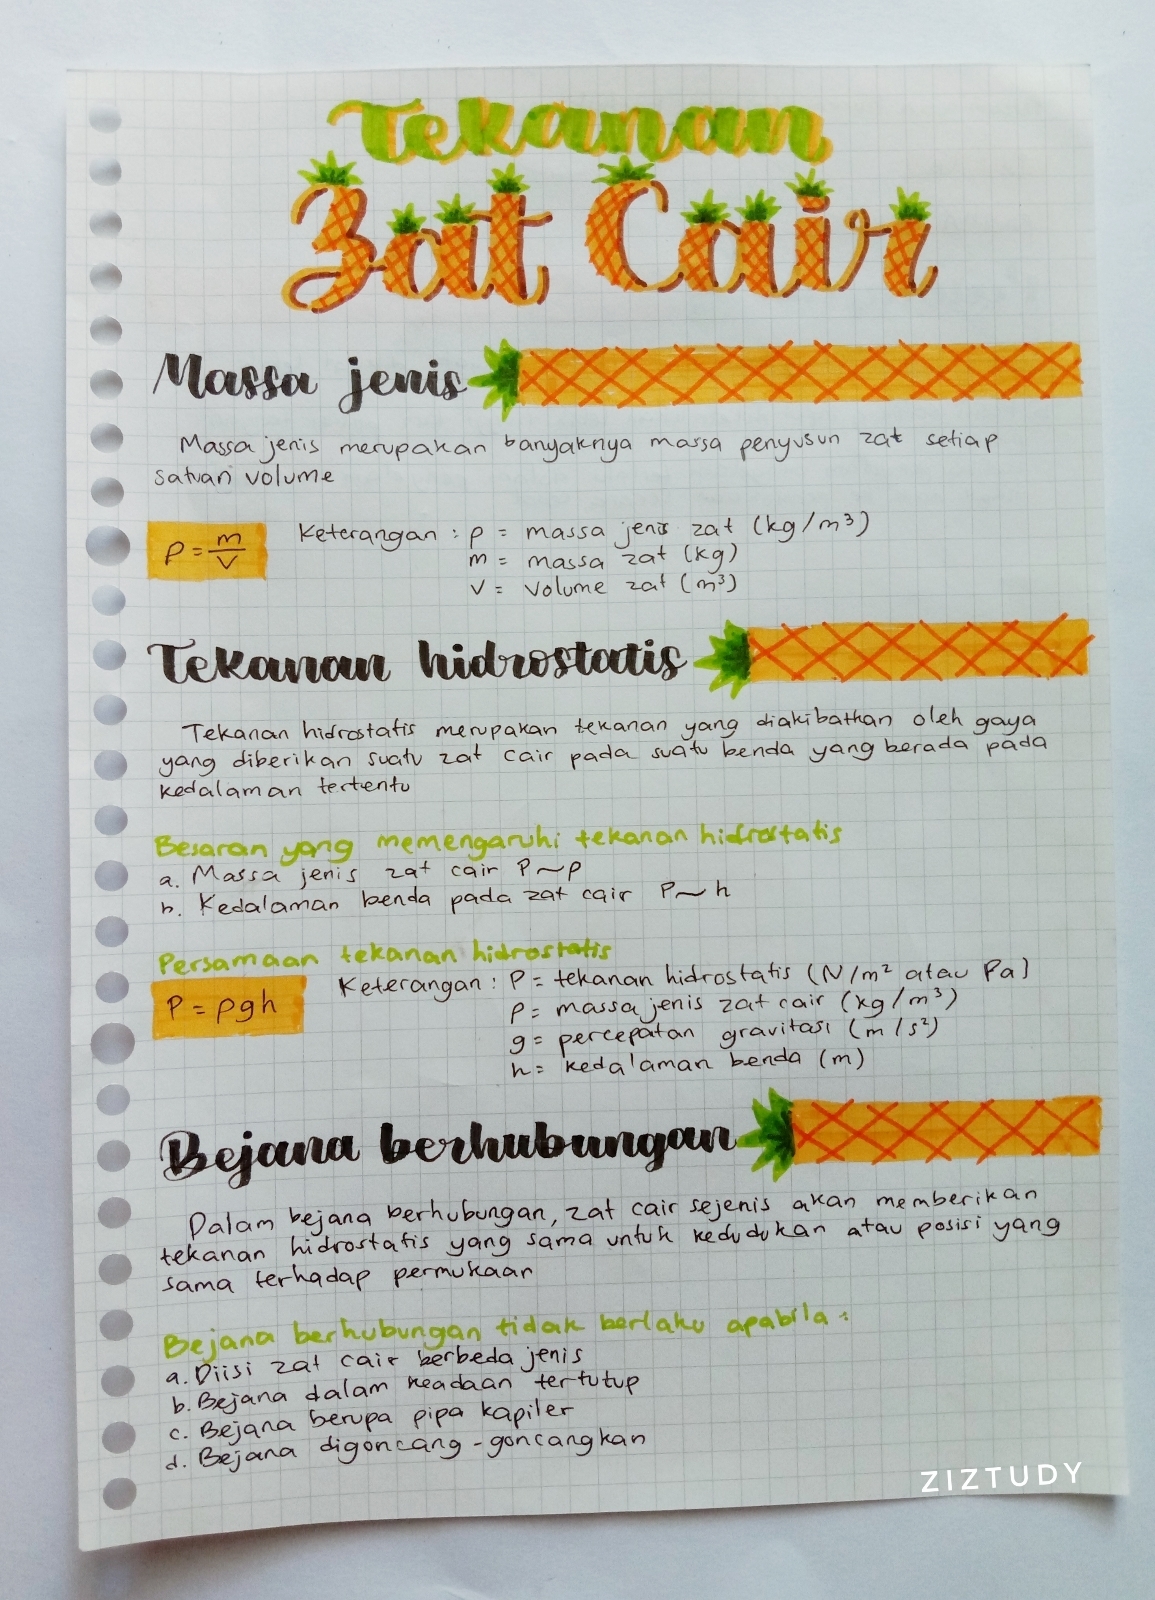 Tekanan
Zat Cair
Massa jenis
Massa jenis merupakan banyaknya massa penyusun zat setiap
satuan volume
ρ = m/V
Keterangan : ρ = massa jenis zat (kg/m³)
m = massa zat (kg)
V = volume zat (m³)
Tekanan hidrostatis
Tekanan hidrostatis merupakan tekanan yang diakibatkan oleh gaya
yang diberikan suatu zat cair pada suatu benda yang berada pada
kedalaman tertentu
Besaran yang memengaruhi tekanan hidrostatis
a. Massa jenis zat cair P ~ ρ
b. Kedalaman benda pada zat cair P ~ h
Persamaan tekanan hidrostatis
P = ρgh
Keterangan : P = tekanan hidrostatis (N/m² atau Pa)
ρ = massa jenis zat cair (kg/m³)
g = percepatan gravitasi (m/s²)
h = kedalaman benda (m)
Bejana berhubungan
Dalam bejana berhubungan, zat cair sejenis akan memberikan
tekanan hidrostatis yang sama untuk kedudukan atau posisi yang
sama terhadap permukaan
Bejana berhubungan tidak berlaku apabila :
a. Diisi zat cair berbeda jenis
b. Bejana dalam keadaan tertutup
c. Bejana berupa pipa kapiler
d. Bejana digoncang-goncangkan
ZIZTUDY